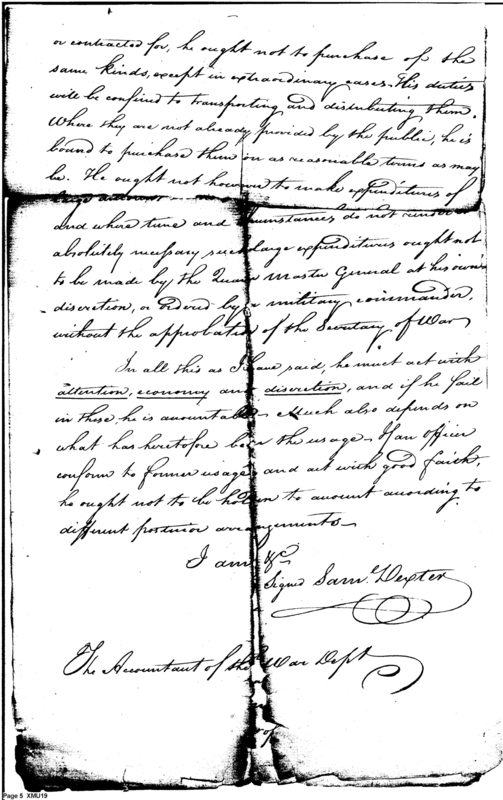 or contracted for, he ought not to purchase of the
same kinds, except in extraordinary cases. His duties
will be confined to transporting and distributing them.
Where they are not already provided by the public, he is
bound to purchase them on as reasonable terms as may
be. He ought not however to make expenditures of
large amount
and where time and circumstances do not render
absolutely necessary such large expenditures ought not
to be made by the Quarr Master General at his own
discretion, or ordered by a military commander,
without the approbation of the Secretary of War
In all this as I have said, he must act with
attention, economy and discretion, and if he fail
in these, he is accountable. Much also depends on
what has heretofore been the usage. If an officer
conform to former usage, and act with good faith,
he ought not to be holden to account according to
different posterior arrangements
I am &c
Signed Saml. Dexter
The Accountant of the War Dept
Page 5 XMU19